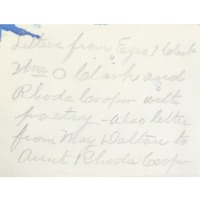 Letters from Ezra T Clark
Wm O Clark and
Rhoda Cooper with
poetry - also letter
from May Dalton to
Aunt Rhoda Cooper